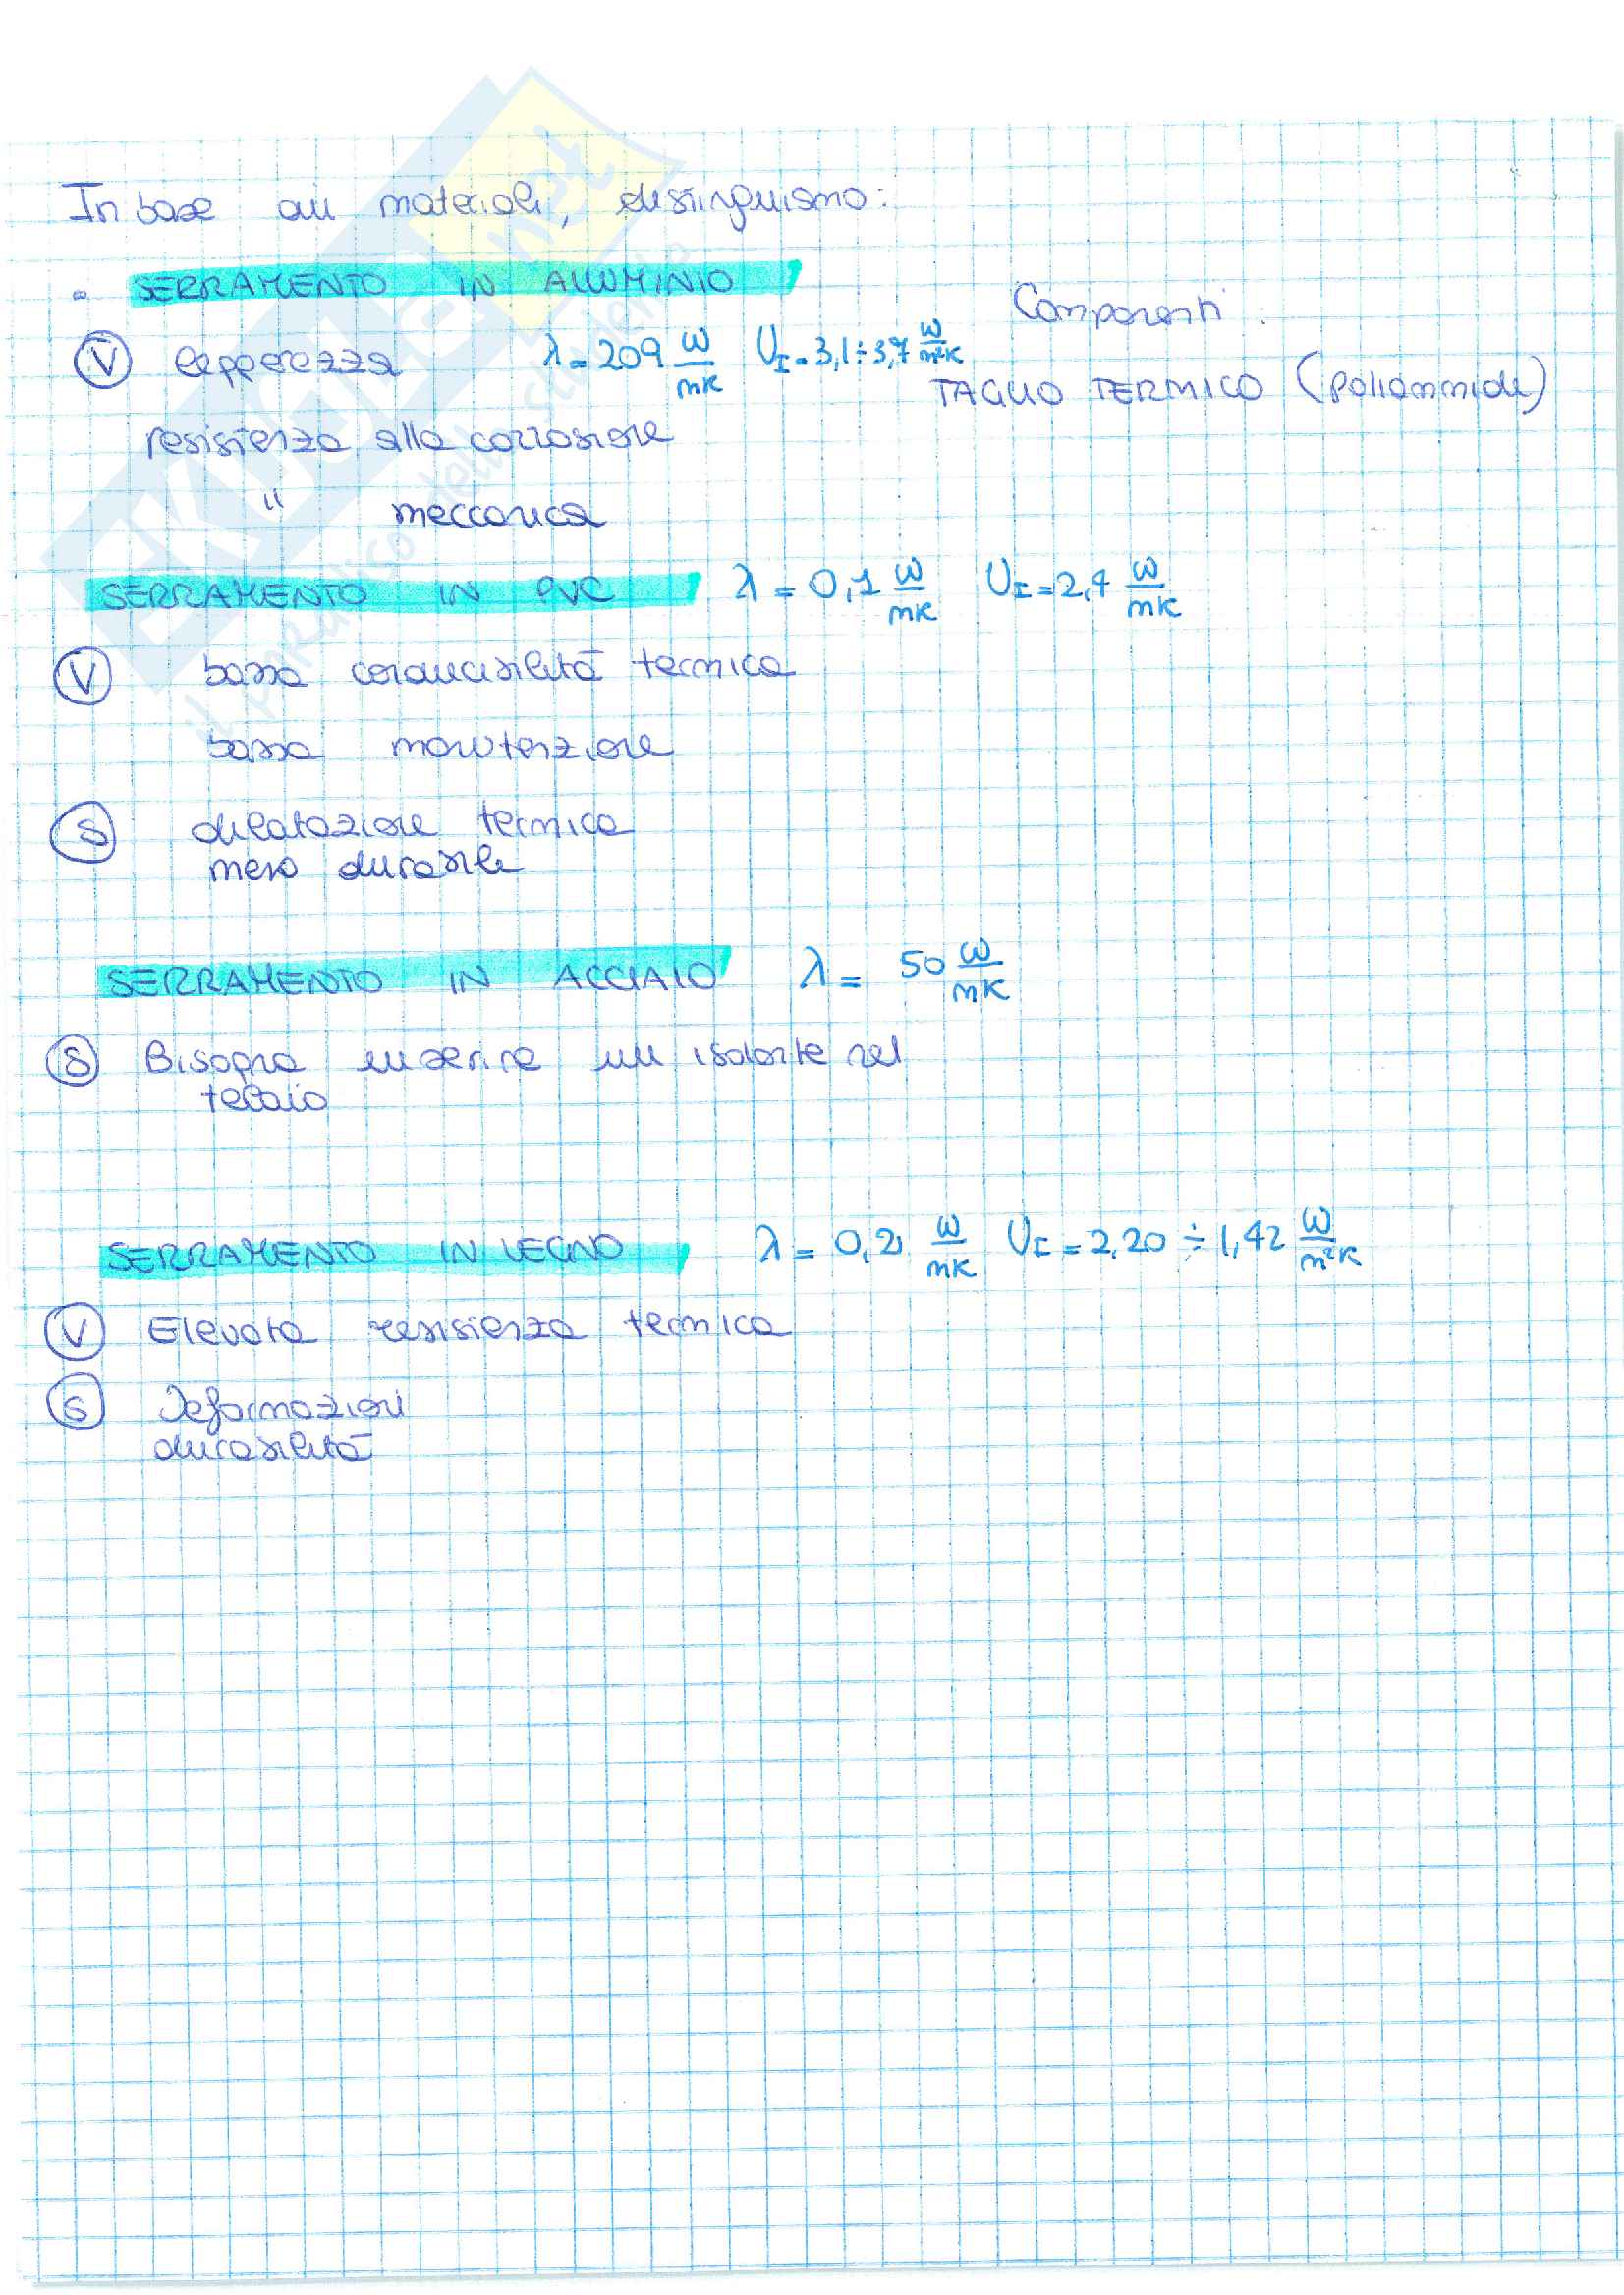 In base ai materiali, distinguiamo:
- SERRAMENTO IN ALLUMINIO
Componenti:
V leggerezza λ = 209 W/mK UI = 3,1 ÷ 3,7 W/m²K
TAGLIO TERMICO (poliammide)
resistenza alla corrosione
" meccanica
SERRAMENTO IN PVC λ = 0,1 W/mK UI = 2,4 W/mK
V bassa conducibilità termica
bassa manutenzione
S dilatazione termica
meno durabile
SERRAMENTO IN ACCIAIO λ = 50 W/mK
S Bisogna inserire un isolante nel
telaio
SERRAMENTO IN LEGNO λ = 0,21 W/mK UI = 2,20 ÷ 1,42 W/m²K
V Elevata resistenza termica
S Deformazioni
durabilità